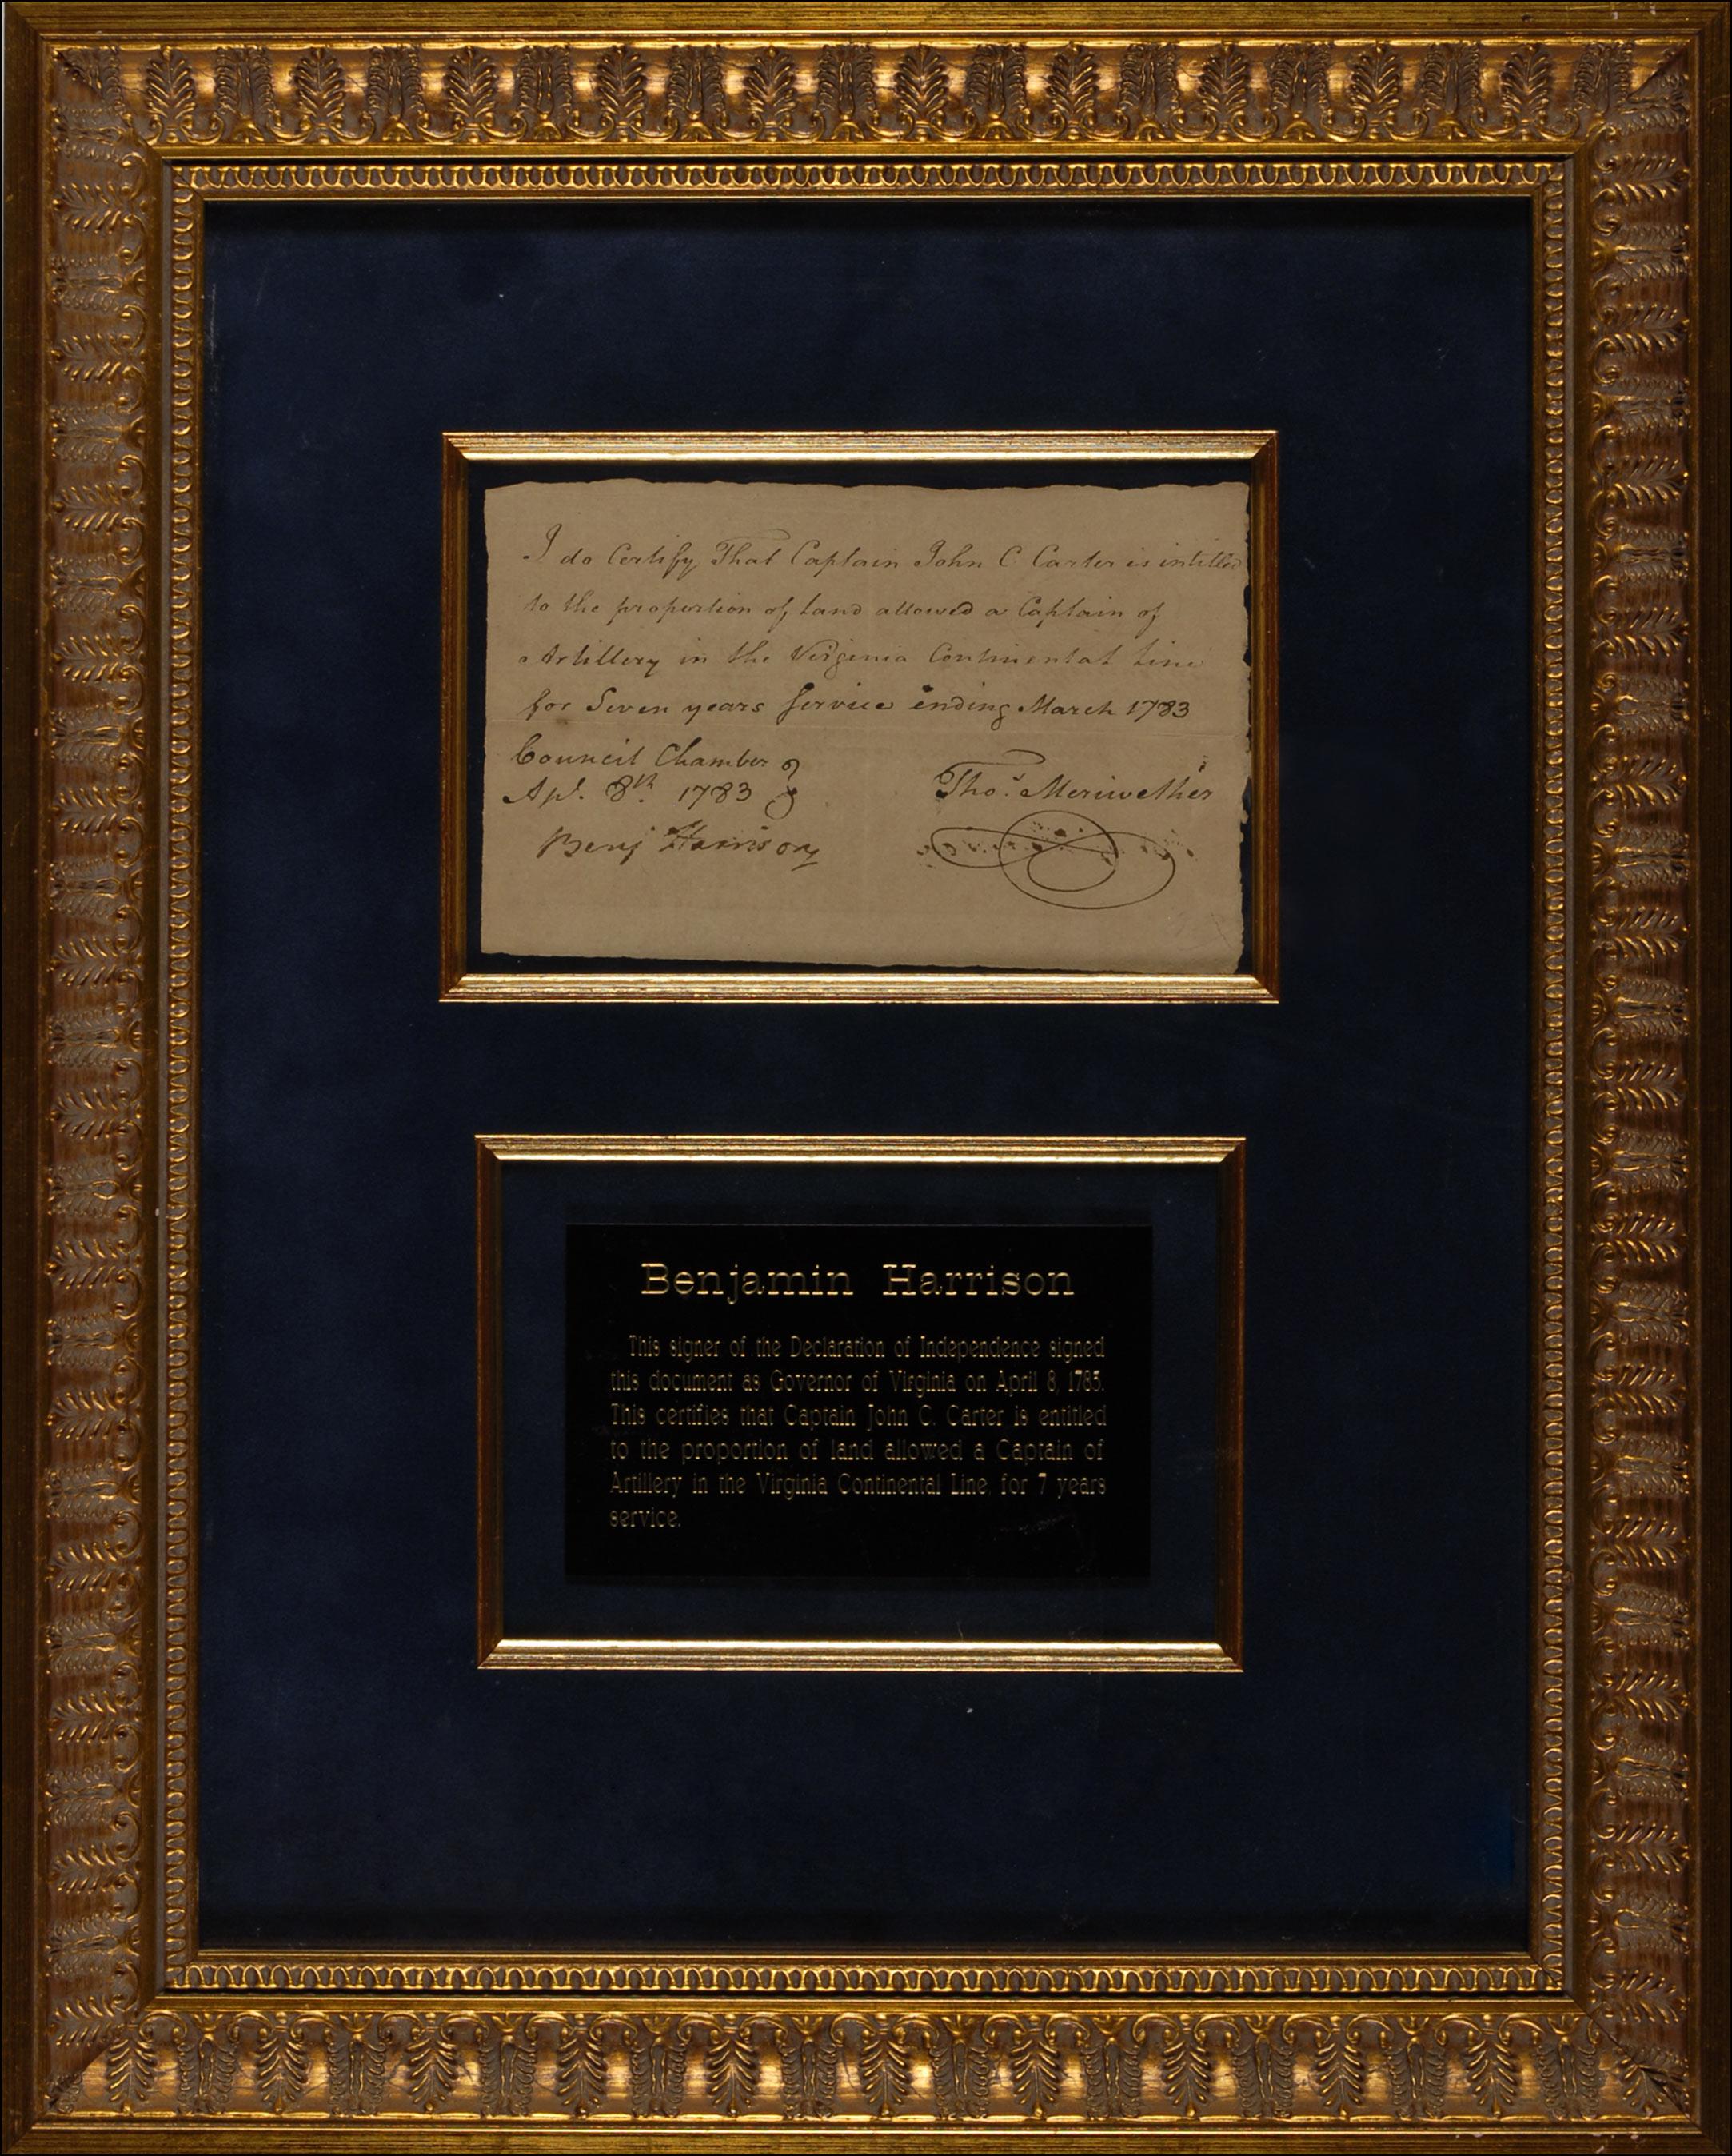 I do Certify That Captain John C Carter is intitled
to the proportion of Land allowed a Captain of
Artillery in the Virginia Continental Line
for Seven years Service ending March 1783
Council Chamber
Apl. 8th. 1783
Thos. Meriwether
Benj Harrison
Benjamin Harrison
This signer of the Declaration of Independence signed
this document as Governor of Virginia on April 8, 1783.
This certifies that Captain John C. Carter is entitled
to the proportion of land allowed a Captain of
Artillery in the Virginia Continental Line, for 7 years
service.